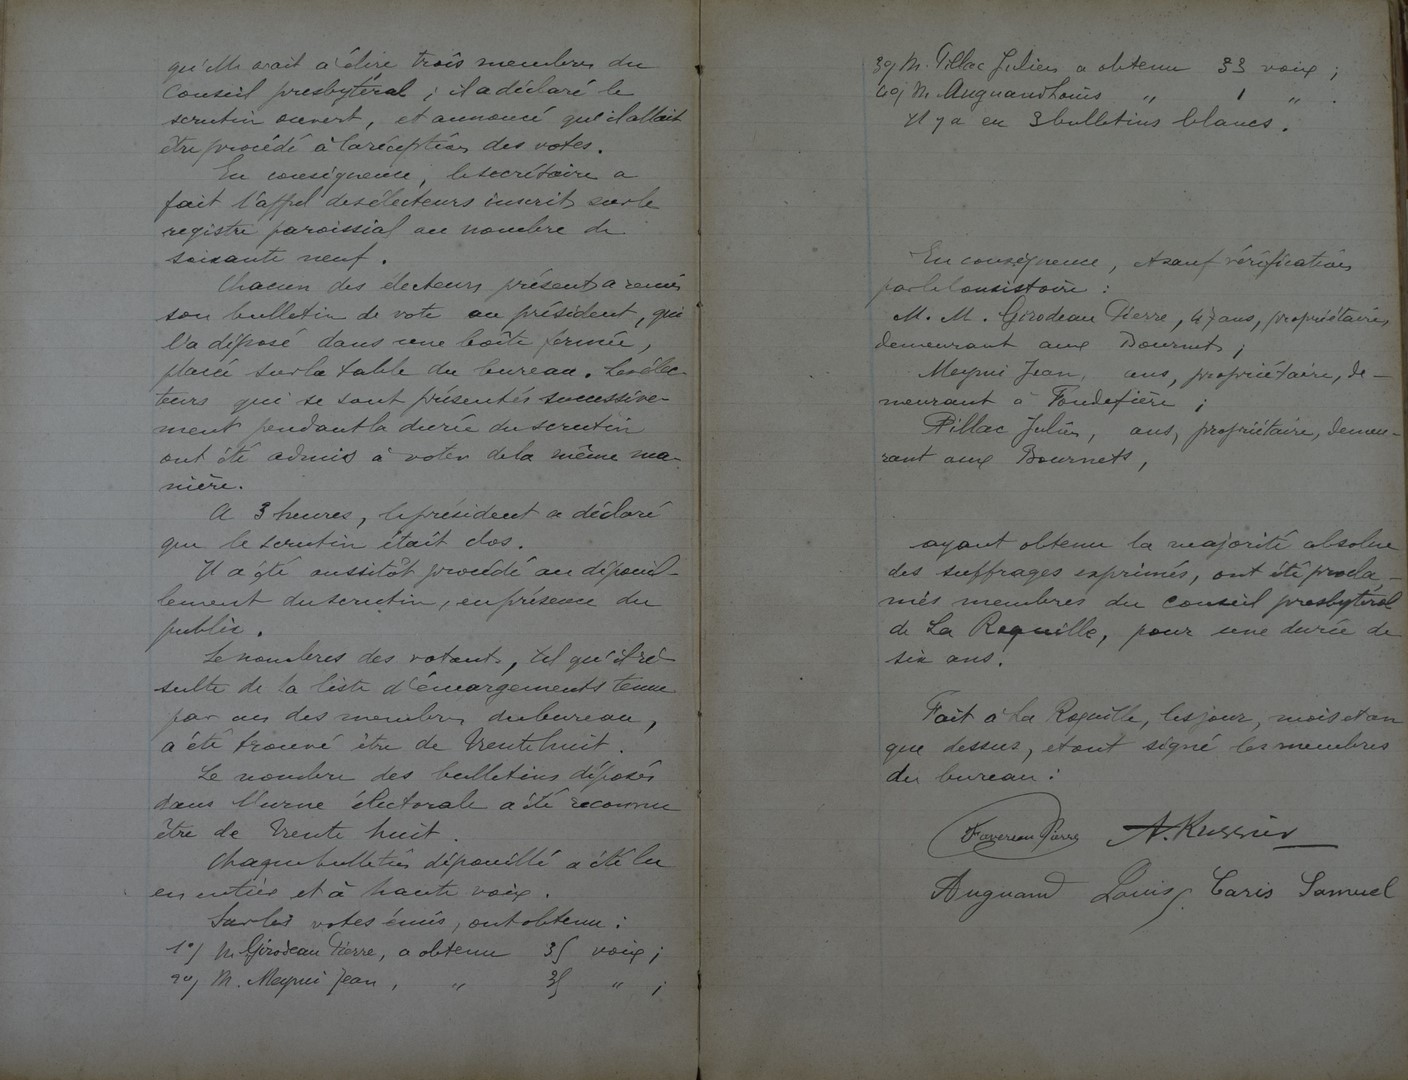 qu'elle avait à élire trois membres du
Conseil presbytéral ; il a déclaré le
scrutin ouvert, et annoncé qu'il allait
être procédé à la réception des votes.
En conséquence, le secrétaire a
fait l'appel des électeurs inscrits sur le
registre paroissial au nombre de
soixante neuf.
Chacun des électeurs présents a remis
son bulletin de vote au président, qui
l'a déposé dans une boîte fermée,
placée sur la table du bureau. Les élec-
teurs qui se sont présentés successive-
ment pendant la durée du scrutin
ont été admis à voter de la même ma-
nière.
A 3 heures, le président a déclaré
que le scrutin était clos.
Il a été aussitôt procédé au dépouil-
lement du scrutin, en présence du
public.
Le nombres des votants, tel qu'il ré-
sulte de la liste d'émargements tenue
par un des membres du bureau,
a été trouvé être de trente huit.
Le nombre des bulletins déposés
dans l'urne électorale a été reconnu
être de trente huit.
Chaque bulletin dépouillé a été lu
en entier et à haute voix.
Sur les votes émis, ont obtenu :
1°/ M. Girodeau Pierre, a obtenu 35 voix ;
2°/ M. Meynié Jean, " 35 " ;
3°/ M. Pillac Julien a obtenu 33 voix ;
4°/ M. Auguand Louis " 1 " .
Il y a eu 3 bulletins blancs.
En conséquence, et sauf vérification
par le Consistoire :
M. M. Girodeau Pierre, 47 ans, propriétaire,
demeurant aux Bournets ;
Meynié Jean, ans, propriétaire, de-
meurant à Fondefière ;
Pillac Julien, ans, propriétaire, demeu-
rant aux Bournets,
ayant obtenu la majorité absolue
des suffrages exprimés, ont été procla-
més membres du Conseil presbytéral
de La Roquille, pour une durée de
six ans.
Fait à La Roquille, les jour, mois et an
que dessus, et ont signé les membres
du bureau :
Favereau Pierre
Auguand Louis Caris Samuel